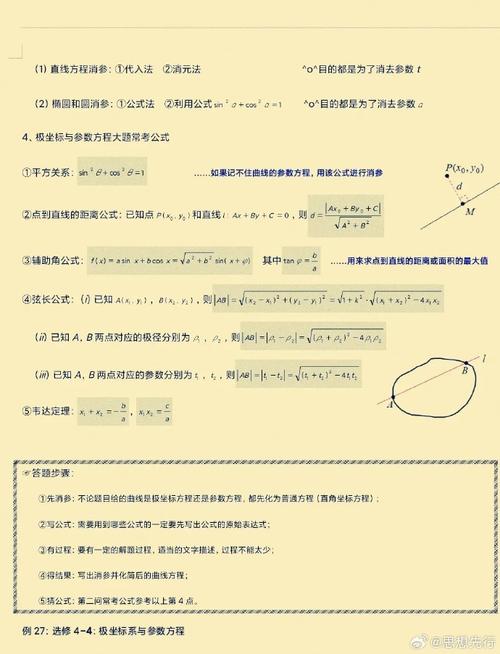 (1) 直线方程消参：①代入法 ②消元法 ^o^目的都是为了消去参数 t
(2) 椭圆和圆消参：①公式法 ②利用公式 sin²α+cos²α=1 ^o^目的都是为了消去参数 α
4、极坐标与参数方程大题常考公式
①平方关系：sin²θ+cos²θ=1 ……如果记不住曲线的参数方程，用该公式进行消参
P(x₀, y₀)
d
M
②点到直线的距离公式：已知点 P(x₀, y₀) 和直线 l: Ax+By+C=0，则 d=|Ax₀+By₀+C|/√(A²+B²)
③辅助角公式：f(x)=a sin x+b cos x=√(a²+b²) sin(x+φ) 其中 tan φ=b/a ……用来求点到直线的距离或面积的最大值
④弦长公式：(i) 已知 A(x₁, y₁)，B(x₂, y₂)，则|AB|=√((x₂-x₁)²+(y₂-y₁)²)=√(1+k²)·√((x₁+x₂)²-4x₁x₂)
(ii) 已知 A, B 两点对应的极径分别为 ρ₁，ρ₂，则|AB|=|ρ₁-ρ₂|=√((ρ₁+ρ₂)²-4ρ₁ρ₂)
(iii) 已知 A, B 两点对应的参数分别为 t₁，t₂，则|AB|=|t₁-t₂|=√((t₁+t₂)²-4t₁t₂)
l
B
A
⑤韦达定理：x₁+x₂=-b/a，x₁x₂=c/a
☞答题步骤：
①先消参：不论题目给的曲线是极坐标方程还是参数方程，都先化为普通方程（直角坐标方程）；
②写公式：需要用到哪些公式的一定要先写出公式的原始表达式；
③有过程：要有一定的解题过程，适当的文字描述，过程不能太少；
④得结果：写出消参并化简后的曲线方程；
⑤猜公式：第二问常考公式参考以上第 4 点。
例 27: 选修 4-4: 极坐标系与参数方程
@思想先行